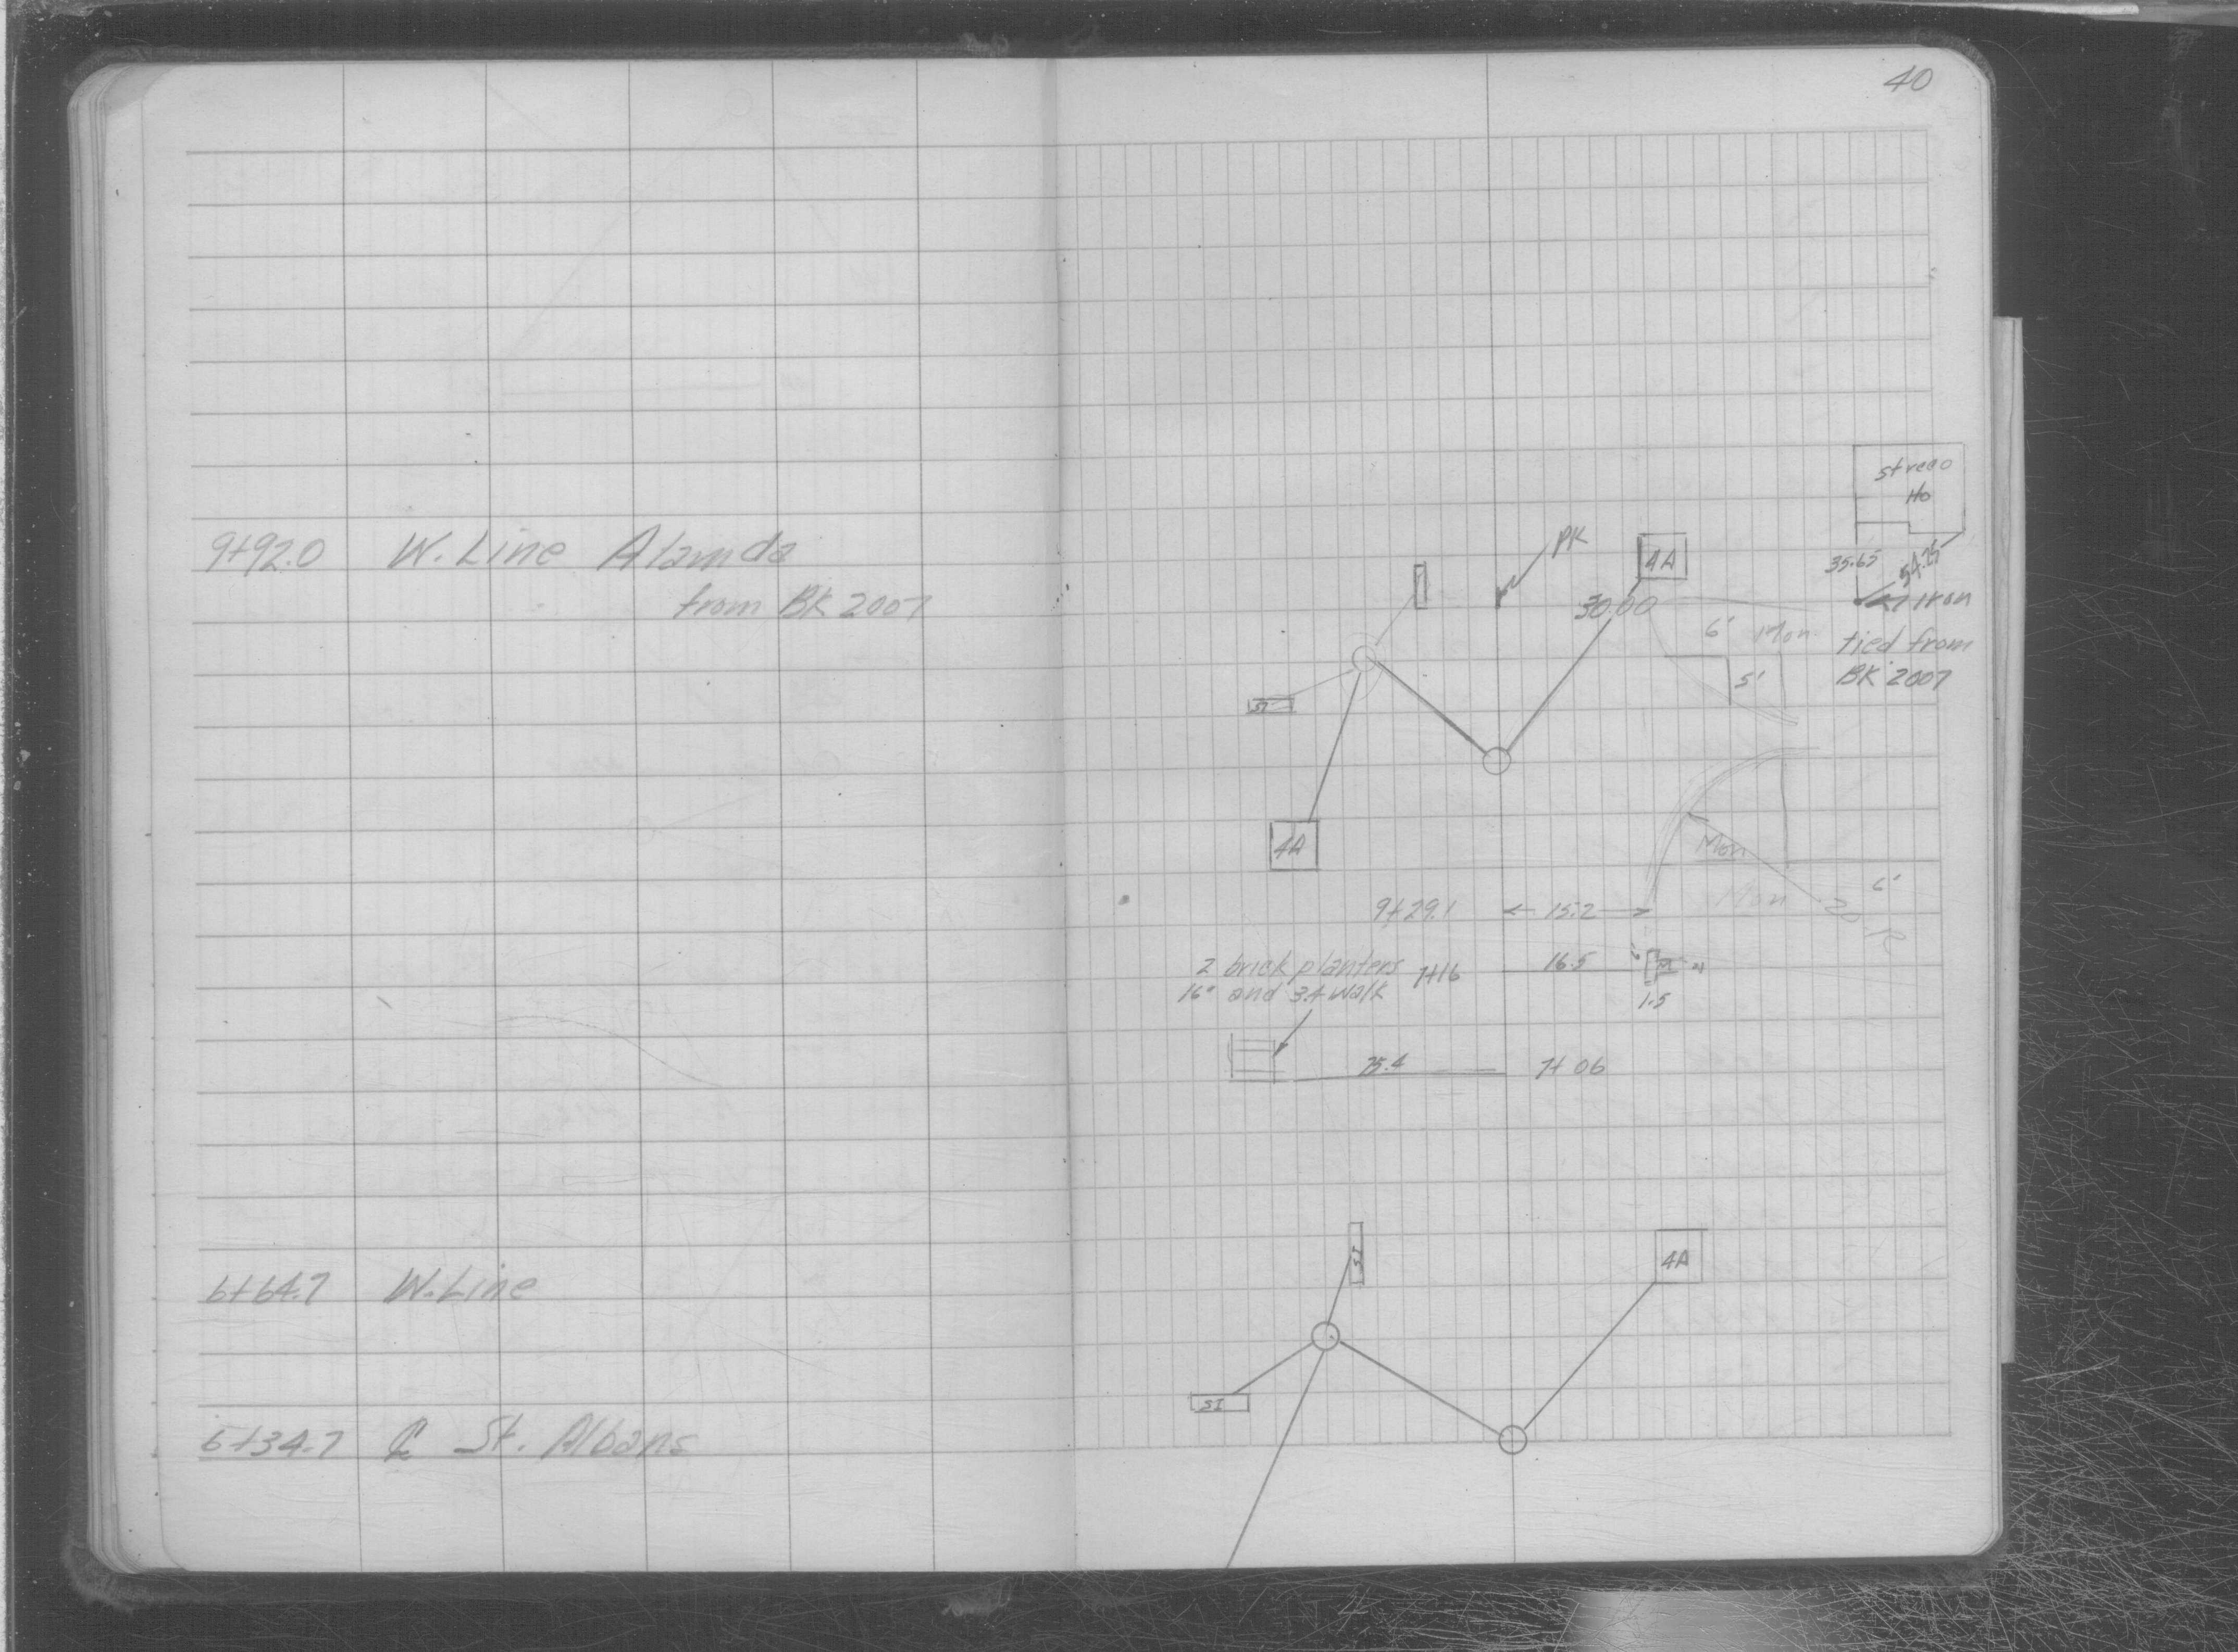 40
9+92.0 W. Line Alamda
from BK 2007
streco
Ho
PK
4A
35.65
54.25
30.00
Iron
6' Mon
tied from
5'
BK 2007
SI
4A
Mon
6'
Mon
20 R
9+29.1 15.2
2 brick planters 7+16 16.5
16" and 3.4 walk
1.5
35.4 7+06
SI
4A
6+64.7 W. Line
SI
6+34.7 ℄ St. Albans